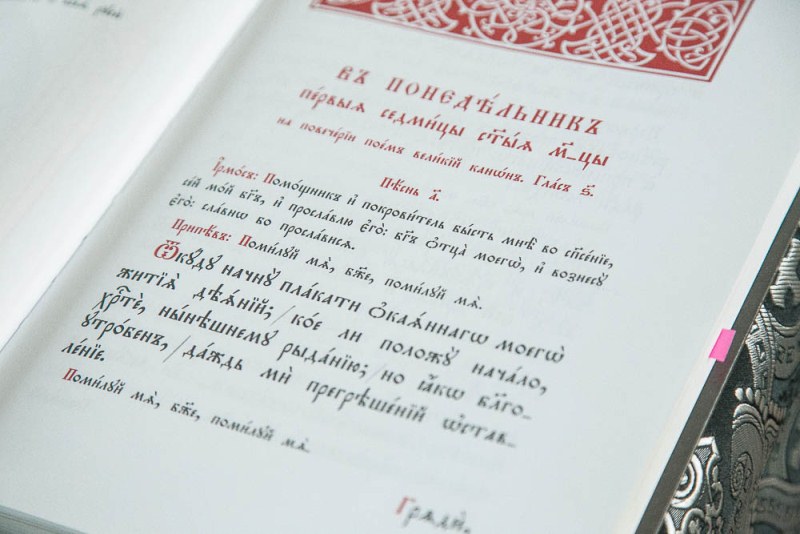 въ понедѣ́льникъ
пе́рвыѧ седми́цы ст҃ы́ѧ м҃-цы
на повече́рїи пое́мъ вели́кїй канѡ́нъ. Гла́съ ѕ҃.
Пѣ́снь а҃.
І҆рмо́съ: Помо́щникъ и҆ покрови́тель бы́сть мнѣ̀ во сп҃се́нїе,
се́й мо́й бг҃ъ, и҆ просла́влю є҆го̀: бг҃ъ ѻ҆тца̀ моегѡ̀, и҆ вознесꙋ̀
є҆го̀: сла́внѡ бо просла́висѧ.
Припѣ́въ: Поми́лꙋй мѧ̀, бж҃е, поми́лꙋй мѧ̀.
Ѿкꙋ́дꙋ начнꙋ̀ пла́кати ѻ҆каѧ́ннагѡ моегѡ̀
житїѧ̀ дѣѧ́нїй; / ко́е ли положꙋ̀ нача́ло,
хрⷭ҇тѐ, ны́нѣшнемꙋ рыда́нїю; / но ꙗ҆́кѡ бл҃го-
ꙋтро́бенъ, / да́ждь мѝ прегрѣше́нїй ѡ҆ставле́-
ле́нїе.
Поми́лꙋй мѧ̀, бж҃е, поми́лꙋй мѧ̀.
Грѧдѝ,